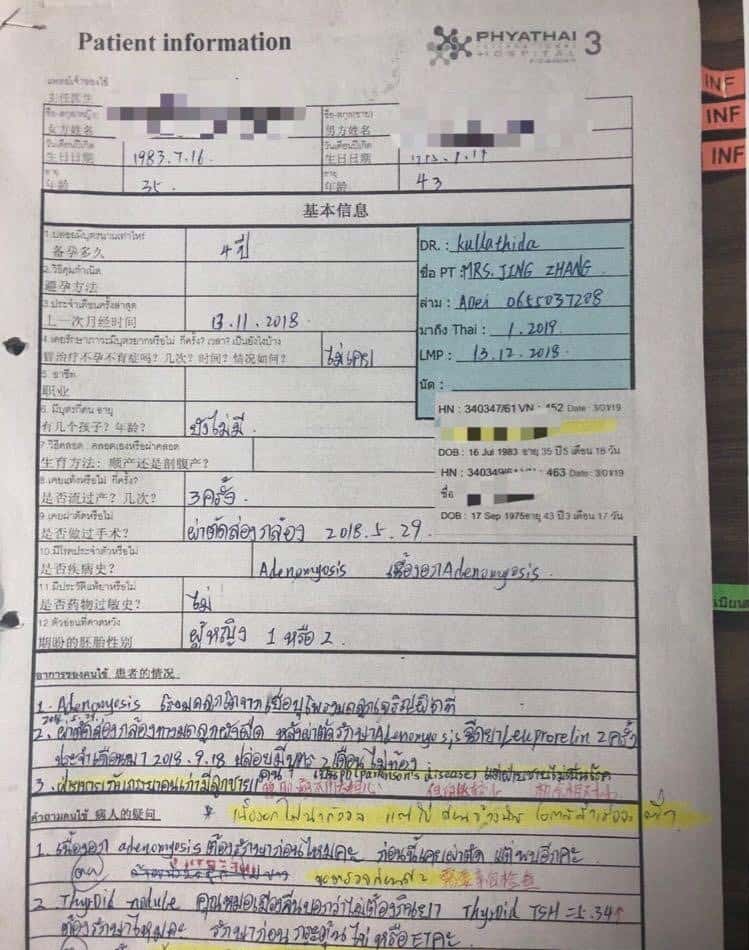 Patient information
PHYATHAI 3
INTERNATIONAL
HOSPITAL
INF
INF
INF
แพทย์เจ้าของไข้
主任医生
ชื่อ-สกุล(หญิง)
女方姓名
ชื่อ-สกุล(ชาย)
男方姓名
วันเดือนปีเกิด
生日日期
1983.7.16
วันเดือนปีเกิด
生日日期
อายุ
年龄
35.
อายุ
年龄
43
基本信息
1.ปล่อยมีบุตรนานเท่าไหร่
备孕多久
4 ปี
2.วิธีคุมกำเนิด
避孕方法
3.ประจำเดือนครั้งล่าสุด
上一次月经时间
13.11.2018
4.เคยรักษาภาวะมีบุตรยากหรือไม่ กี่ครั้ง? เวลา? เป็นยังไงบ้าง
曾治疗不孕不育症吗? 几次? 时间? 情况如何?
ไม่เคย
5. อาชีพ
职业
6. มีบุตรกี่คน อายุ
有几个孩子? 年龄?
ยังไม่มี
7.วิธีคลอด : คลอดเองหรือผ่าคลอด
生育方法: 顺产还是剖腹产?
8.เคยแท้งหรือไม่ กี่ครั้ง?
是否流过产? 几次?
3 ครั้ง
9.เคยผ่าตัดหรือไม่
是否做过手术?
ผ่าตัดส่องกล้อง 2018.5.29.
10.มีโรคประจำตัวหรือไม่
是否疾病史?
Adenomyosis เนื้องอก Adenomyosis.
11.มีประวัติแพ้ยาหรือไม่
是否药物过敏史?
ไม่
12.ตัวอ่อนที่คาดหวัง
期盼的胚胎性别
ผู้หญิง 1 หรือ 2.
DR. : Kullathida
ชื่อ PT : MRS. JING ZHANG
ล่าม : Adei 0655037208
มาถึง Thai : 1.2019
LMP : 13.12.2018.
นัด :
HN : 340347/61 VN : 452 Date : 3/01/19
DOB : 16 Jul 1983 อายุ 35 ปี 5 เดือน 18 วัน
HN : 340349 463 Date : 3/01/19
ชื่อ
DOB : 17 Sep 1975 อายุ 43 ปี 3 เดือน 17 วัน
อาการของคนไข้ 患者的情况
1. Adenomyosis
2. ผ่าตัดส่องกล้อง หลังผ่าตัดรักษา Adenomyosis ฉีดยา Leuprorelin 2 ครั้ง
ประจำเดือนมา 2018.9.18 ปล่อยมีบุตร 2 เดือน ไม่ท้อง
3. (Parkinson's disease)
คำถามคนไข้ 病人的疑问
1. เนื้องอก adenomyosis ต้องรักษาก่อนไหมคะ ก่อนนี้เคยผ่าตัด แต่พบอีกคะ
2. Thyroid nodule คุณหมอเมืองจีนบอกว่าไม่ต้องกินยา Thyroid TSH = 5.34↑
ต้องรักษาไหมคะ รักษาก่อน กระตุ้นไข่ หรือ ET คะ